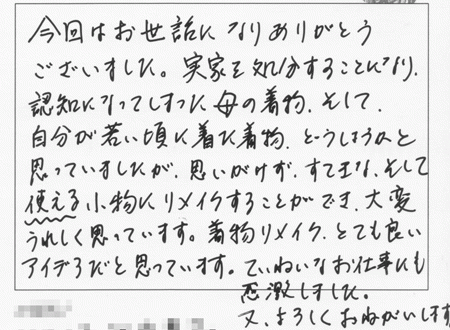 今回はお世話になりありがとう
ございました。実家を処分することになり、
認知になってしまった母の着物、そして、
自分が若い頃に着た着物、どうしようかと
思っていましたが、思いがけず、すてきな、そして
使える小物にリメイクすることができ、大変
うれしく思っています。着物リメイク、とても良い
アイデアだと思っています。ていねいなお仕事にも
感激しました。
又、よろしくおねがいします